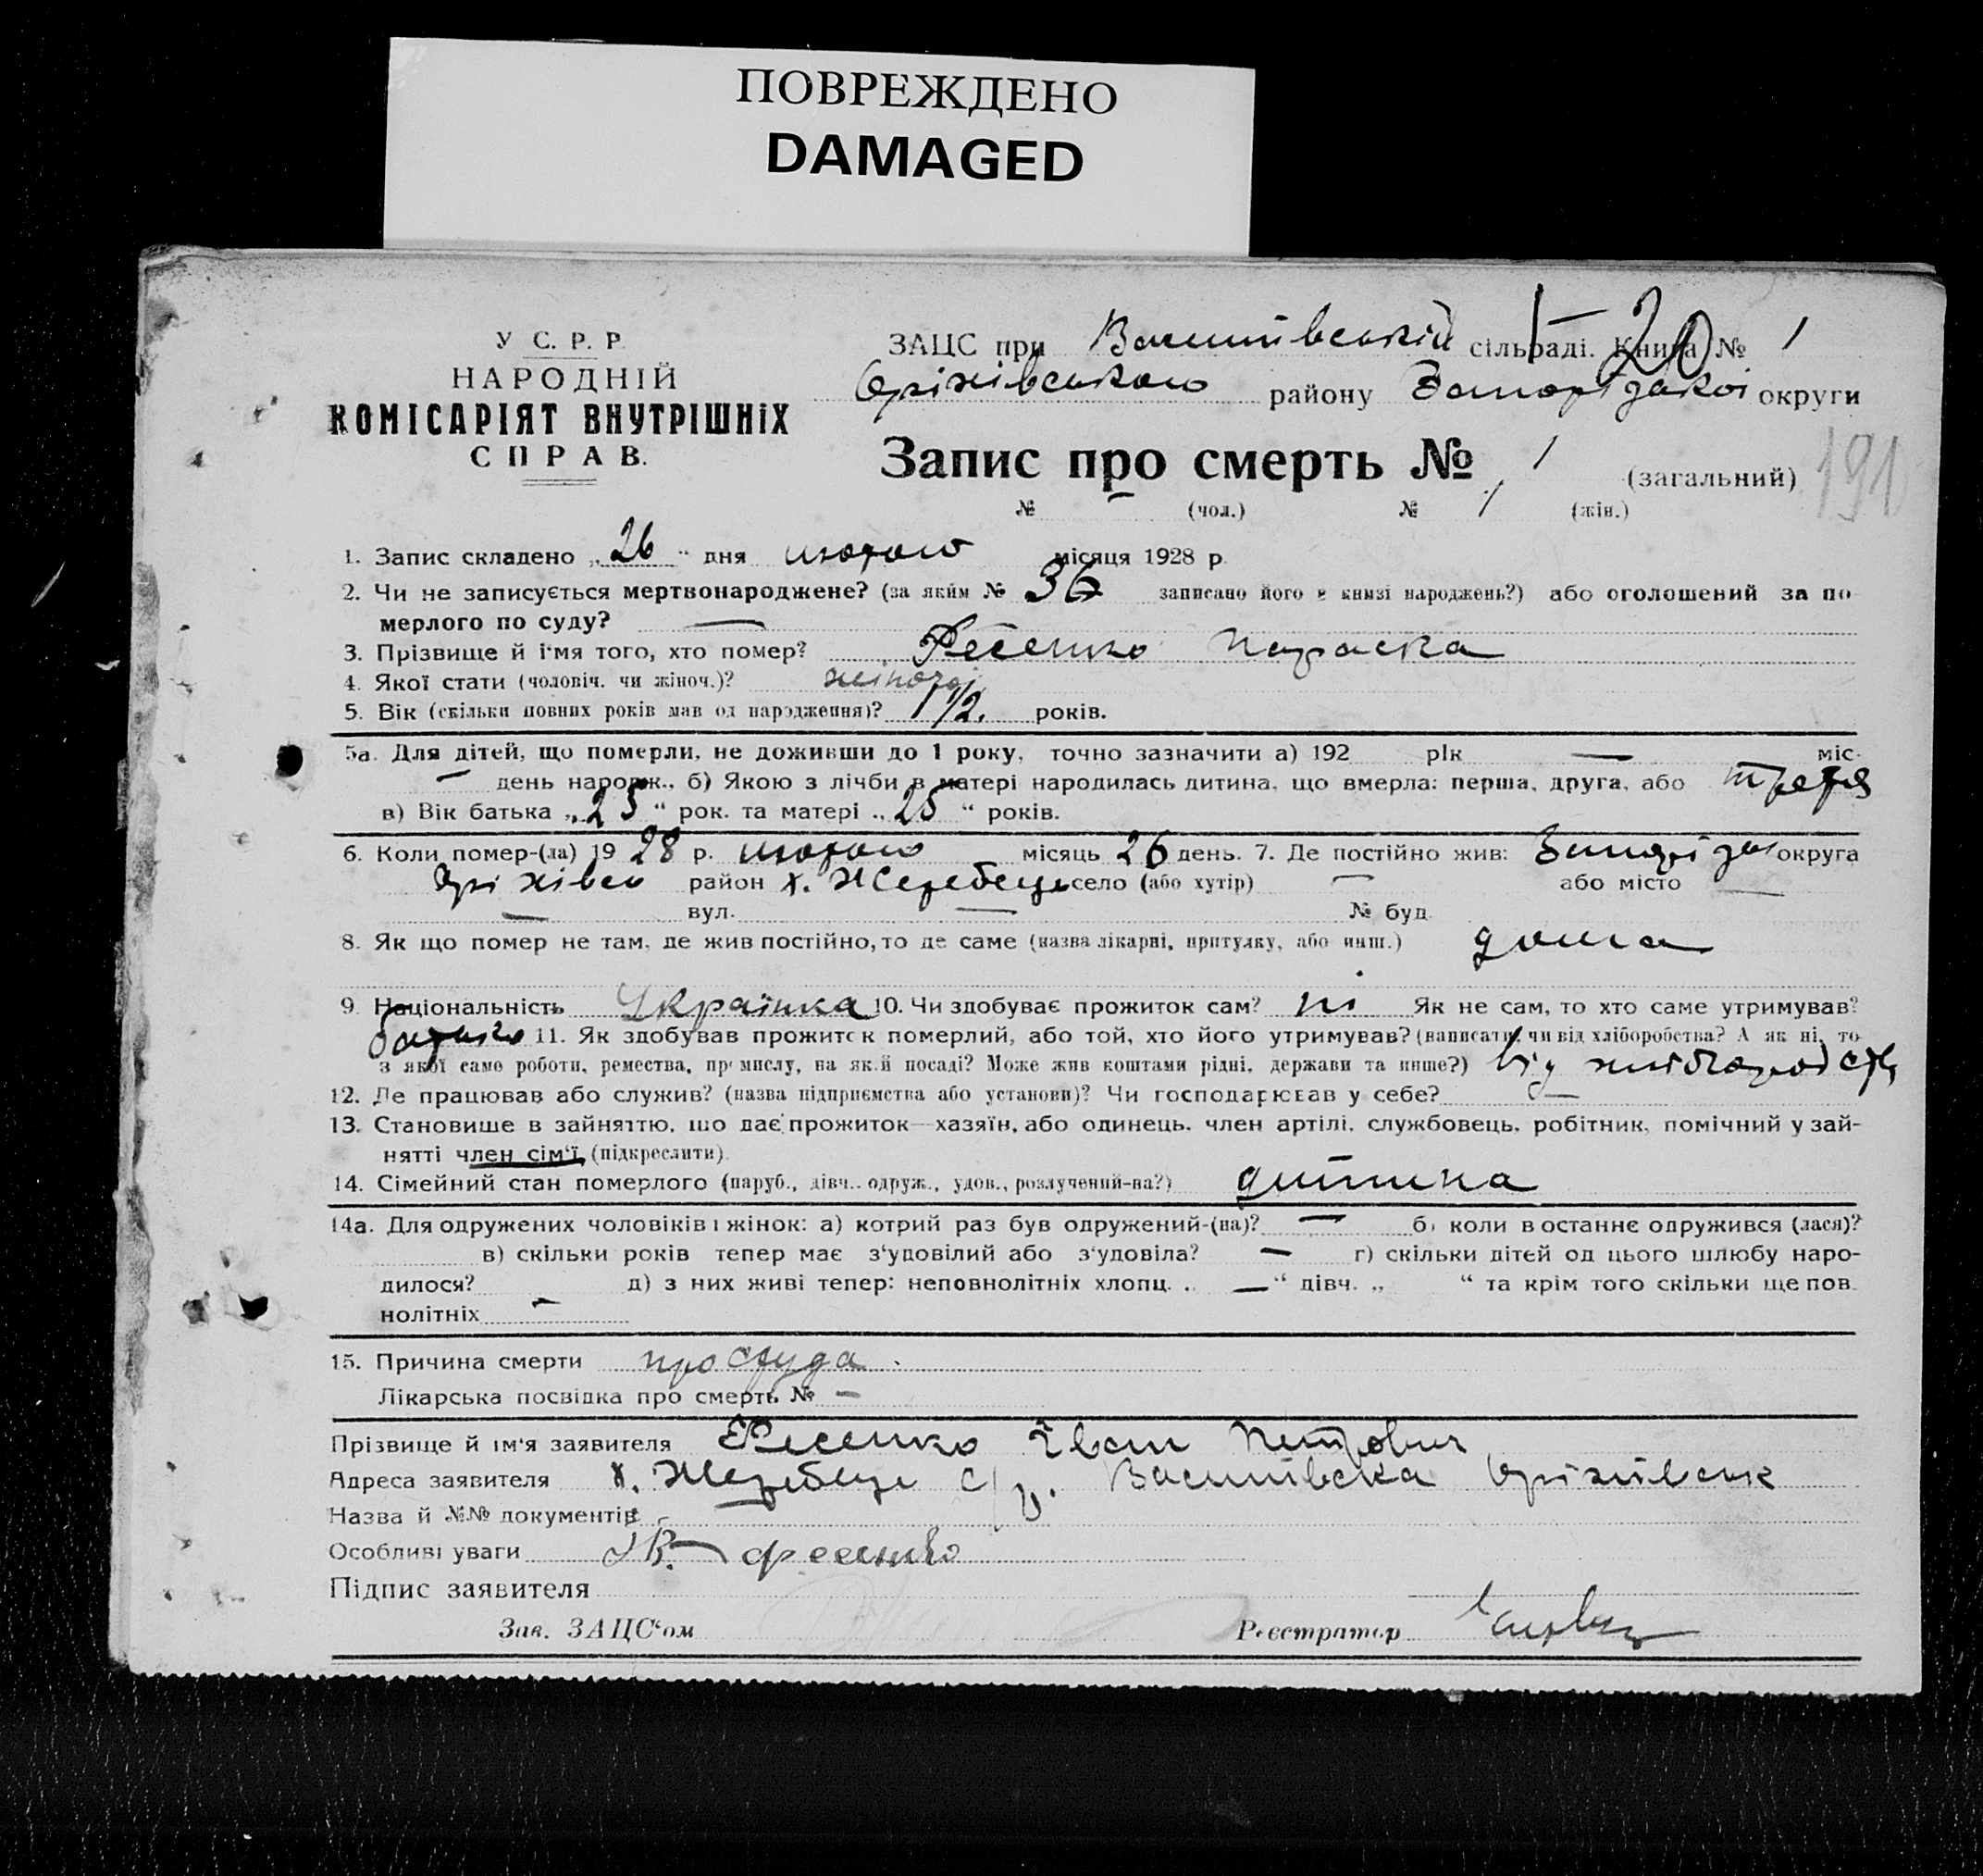 ПОВРЕЖДЕНО
DAMAGED
У С. Р. Р.
НАРОДНІЙ
КОМІСАРІЯТ ВНУТРІШНІХ
СПРАВ.
ЗАЦС при Василівській сільраді. Книга № 1
20
Оріхівського району Запорізької округи
Запис про смерть № 1 (загальний)
191
№ — (чол.) № 1 (жін.)
1. Запис складено „26“ дня лютого місяця 1928 р.
2. Чи не записується мертвонароджене? (за яким № 36 записано його в книзі народжень?) або оголошений за по-
мерлого по суду? —
3. Прізвище й ім'я того, хто помер? Фесенко Параска
4. Якої стати (чоловіч. чи жіноч.)? жіночої
5. Вік (скільки повних років мав од народження)? 1 1/2. років.
5а. Для дітей, що померли, не доживши до 1 року, точно зазначити а) 192 рік — міс.
— день народж., б) Якою з лічби в матері народилась дитина, що вмерла: перша, друга, або третя
в) Вік батька „25“ рок. та матері „25“ років.
6. Коли помер-(ла) 1928 р. лютого місяць 26 день. 7. Де постійно жив: Запоріз округа
Оріхівсь район х. Жеребець село (або хутір) — або місто —
— вул. — № буд.
8. Як що помер не там, де жив постійно, то де саме (назва лікарні, притулку, або инш.) дома
9. Національність Українка 10. Чи здобуває прожиток сам? ні Як не сам, то хто саме утримував?
батько 11. Як здобував прожиток померлий, або той, хто його утримував? (написати, чи від хліборобства? А як ні, то
з якої саме роботи, ремества, промислу, на якій посаді? Може жив коштами рідні, держави та инше?) від
12. Де працював або служив? (назва підприємства або установи)? Чи господарював у себе? —
13. Становище в зайняттю, що дає прожиток—хазяїн, або одинець, член артілі, службовець, робітник, помічний у зай-
нятті член сім'ї, (підкреслити).
14. Сімейний стан померлого (паруб., дівч., одруж., удов., розлучений-на?) дитина
14а. Для одружених чоловіків і жінок: а) котрий раз був одружений-(на)? — б) коли в останнє одружився (лася)?
в) скільки років тепер має з'удовілий або з'удовіла? — г) скільки дітей од цього шлюбу наро-
дилося? д) з них живі тепер: неповнолітніх хлопц. „ —“ дівч. „ “ та крім того скільки ще пов-
нолітніх —
15. Причина смерти простуда.
Лікарська посвідка про смерть № —
Прізвище й ім'я заявителя Фесенко Іван Петрович
Адреса заявителя х. Жеребець с/р. Василівська Оріхівськ
Назва й №№ документів
Особливі уваги Фесенко
Підпис заявителя
Зав. ЗАЦС'ом Реєстратор